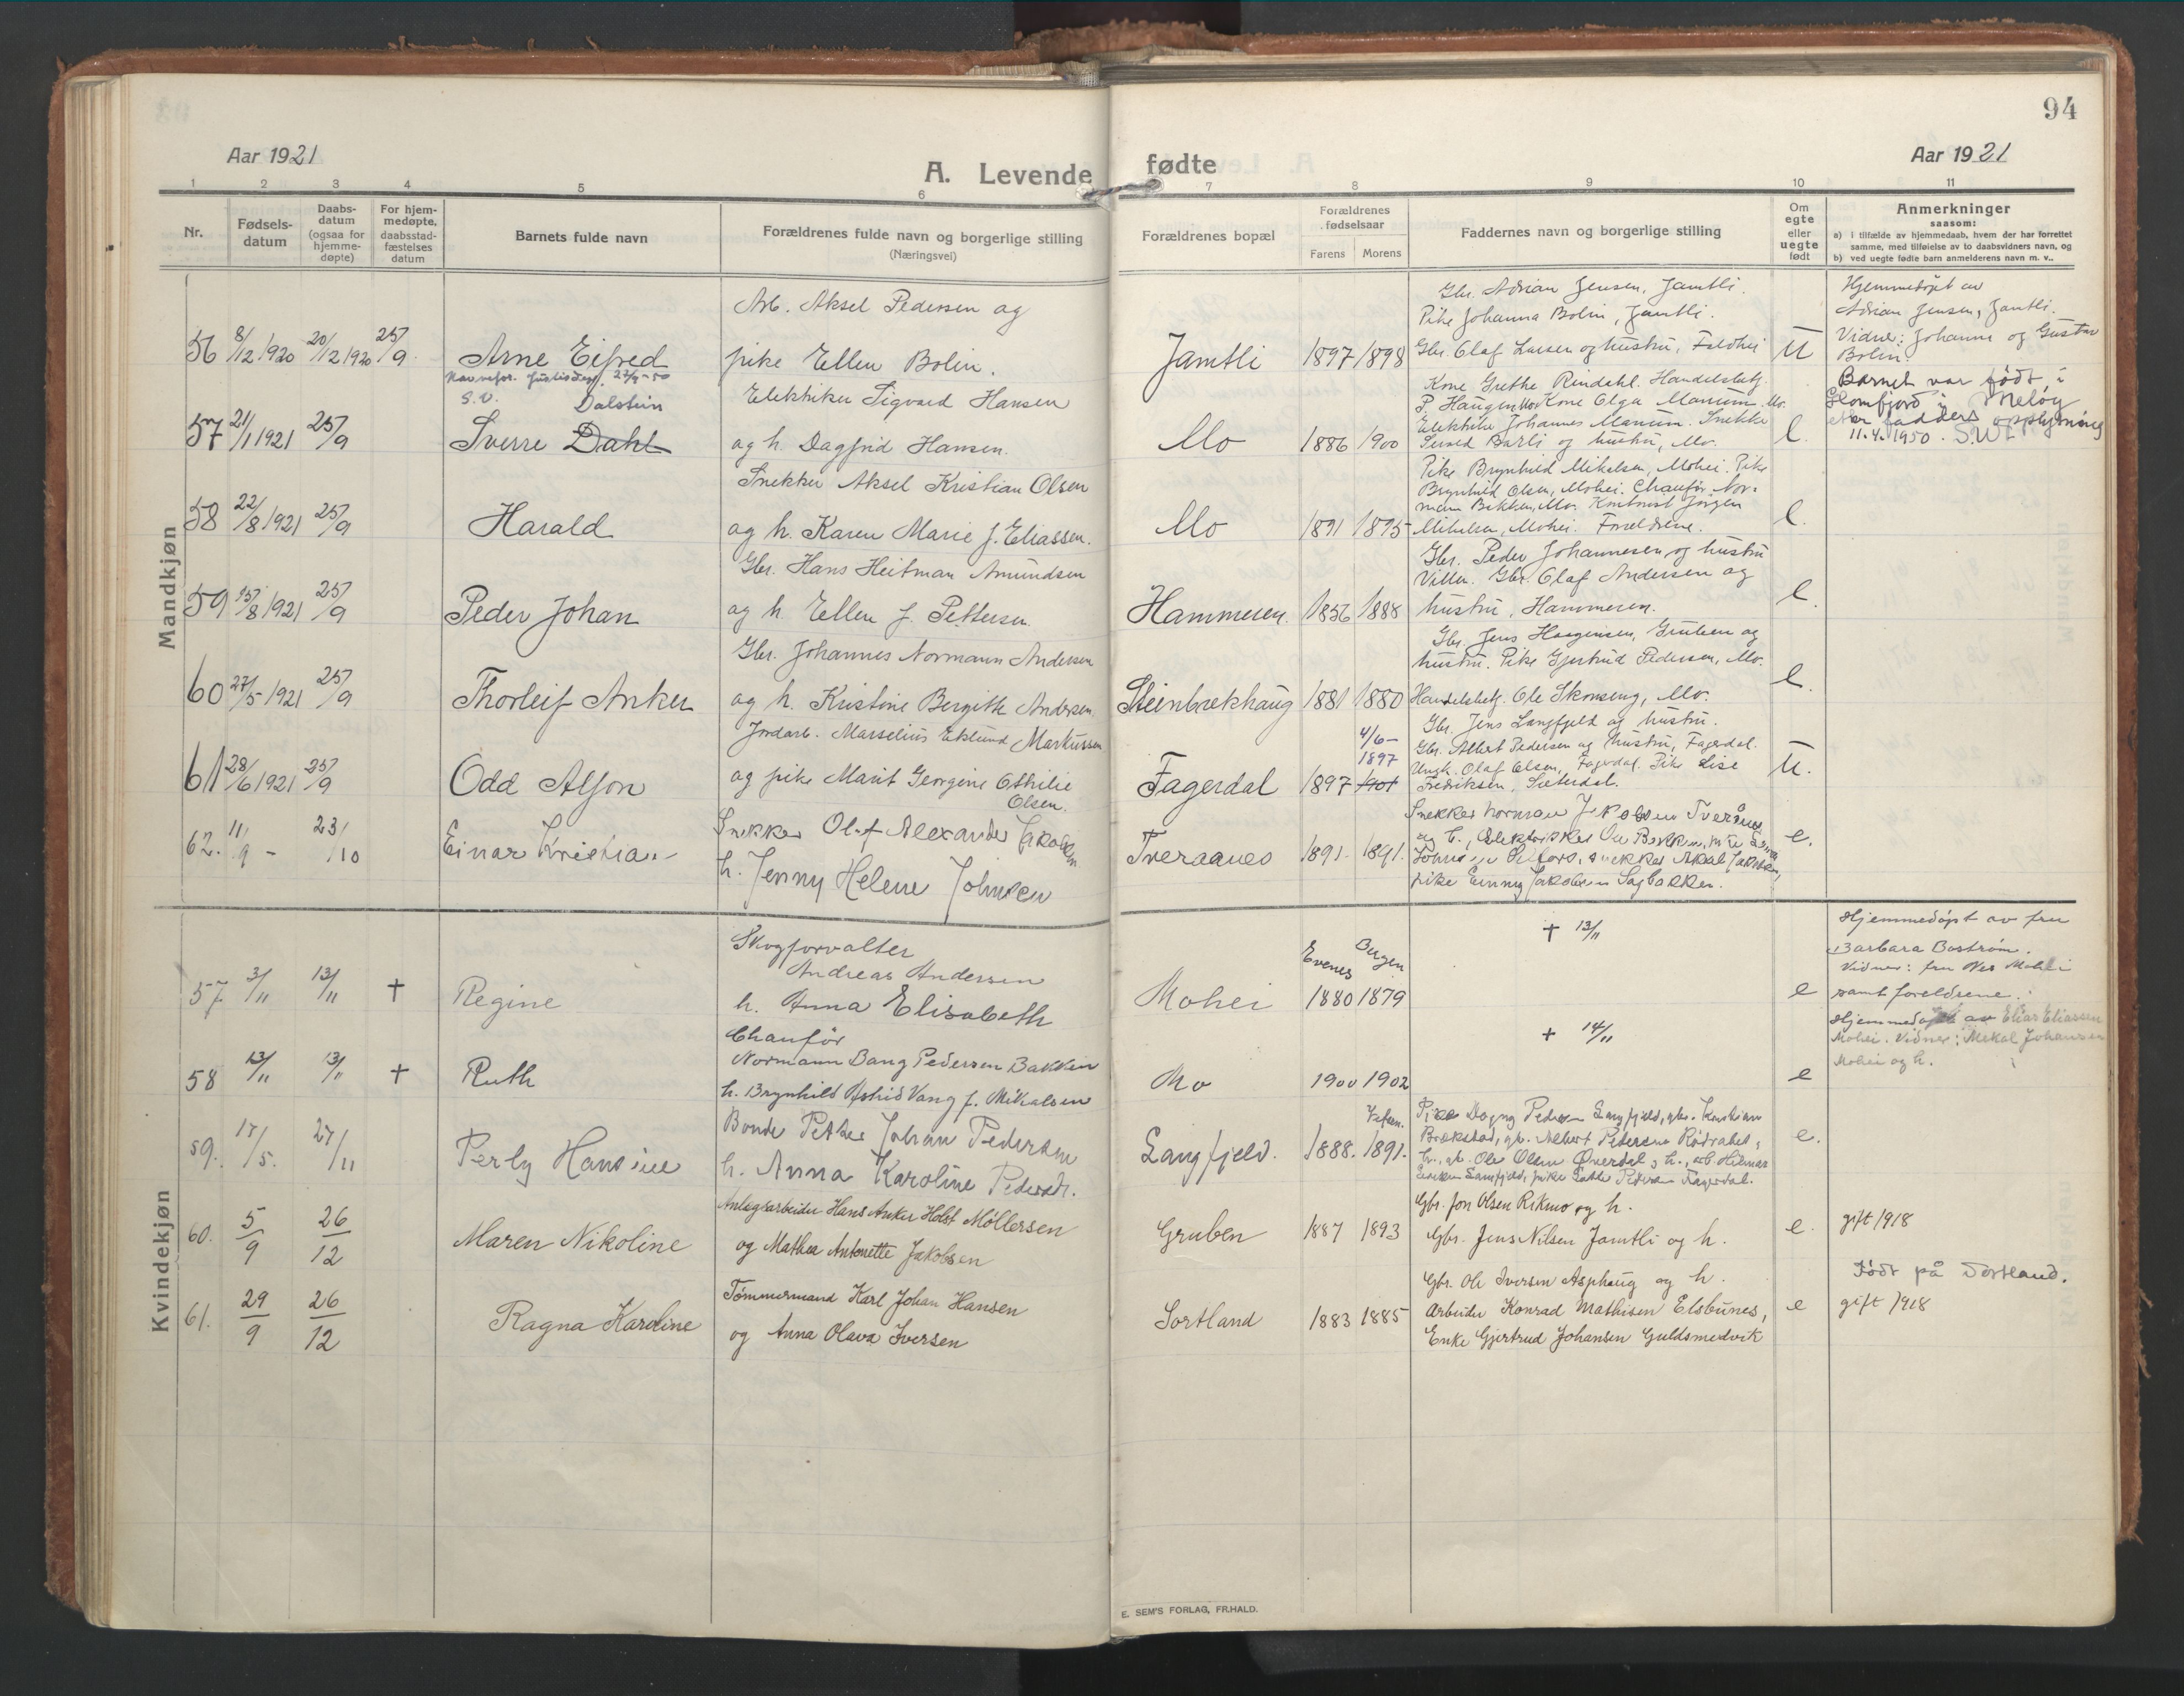 94
Aar 1921
A. Levende fødte
Aar 1921
1 2 3 4 5 6 7 8 9 10 11
Nr.
Fødsels-
datum
Daabs-
datum
(ogsaa for
hjemme-
døpte)
For hjem-
medøpte,
daabsstad-
fæstelses
datum
Barnets fulde navn
Forældrenes fulde navn og borgerlige stilling
(Næringsvei)
Forældrenes bopæl
Forældrenes
fødselsaar
Farens Morens
Faddernes navn og borgerlige stilling
Om
egte
eller
uegte
født
Anmerkninger
saasom:
a) i tilfælde av hjemmedaab, hvem der har forrettet
samme, med tilføielse av to daabsvidners navn, og
b) ved uegte fødte barn anmelderens navn m. v..
Mandkjøn
56 8/12 1920 20/12 1920 25/9
Arne Eifred
Arb. Aksel Pedersen og
pike Ellen Bolin.
Jamtli 1897 1898
Gbr. Adrian Jensen, Jamtli.
Pike Johanna Bolin, Jamtli.
Gbr. Olaf Larsen og hustru, Feldhei
U
Hjemmedøpt av
Adrian Jensen, Jamtli.
Vidner: Johanna og Gustav
Bolin.
57 21/1 1921 25/9
Navnefor. Justisdep. 27/9-50
S.V. Dalstein
Sverre Dahl
Elektriker Sigvard Hansen
og h. Dagfrid Hansen.
Mo 1886 1900
Kone Grethe Rindahl. Handelsbetj.
P. Haugen Mo. Kone Olga Manum Mo.
Elektriker Johannes Manum. Snekker
Barli og hustru, Mo.
e.
Barnet var født i
Glomfjord i Meløy
etter fadders opplysning
11.4.1950. S.W.
58 22/8 1921 25/9
Harald
Snekker Aksel Kristian Olsen
og h. Karen Marie f. Eliassen.
Mo 1891 1895
Pike Brynhild Mikelsen, Mohei. Pike
Brynhild Olsen, Mohei. Chauffør Nor-
man Bakken, Mo. Jørgen
Mikelsen, Mohei. Foreldrene.
e.
59 15/8 1921 25/9
Peder Johan
Gbr. Hans Heitman Amundsen
og h. Ellen J. Pettersen.
Hammeren. 1886 1888
Gbr. Peder Johannesen og hustru
Villa. Gbr. Olaf Andersen og
hustru, Hammeren.
e.
60 27/5 1921 25/9
Thorleif Anker
Gbr. Johannes Normann Andersen
og h. Kristine Bergithe Andersen.
Steinbrekhaug 1881 1880
Gbr. Jens Haagensen, Gruben og
hustru. Pike Gjertrud Pedersen, Mo.
Handelsbetj. Ole Skonseng, Mo.
e.
61 28/6 1921 25/9
Odd Alfon
Jordarb. Marselius Eklund Markussen
og pike Marit Georgine Othilie
Olsen.
Fagerdal 1897 4/6-1897 1901
Gbr. Jens Langfjeld og hustru.
Gbr. Albert Pedersen og hustru, Fagerdal.
Ungk. Olaf Olsen, Fagerdal. Pike Lise
Fredriksen, Sæterdal.
U.
62. 11/9 - 23/10
Einar Kristian
Snekker Olaf Alexander Jakobsen
h. Jenny Helene Johnsen
Tveraanes 1891. 1891.
Snekker Norman Jakobsen Tverånes
og h., elektriker Ole Bakken,
Johnsen Selfors, snekker Aksel Jakobsen,
pike Emmy Jakobsen Sagbakken.
e.
Kvindekjøn
57. 3/11 13/11 †
Regine
Skogforvalter
Andreas Andersen
h. Anna Elisabeth
Mohei Evenes 1880 Bergen 1879
† 13/11
e
Hjemmedøpt av fru
Barbara Boström.
Vidner: fru Nes Mohei
samt foreldrene.
58 13/11 13/11 †
Ruth
Chauför
Normann Bang Pedersen Bakken
h. Brynhild Astrid Vang f. Mikalsen
Mo 1900 1902
† 14/11
e
Hjemmedøpt av Elias Eliassen
Mohei. Vidner: Mikal Johansen
Mohei og h.
59. 17/5. 27/11
Perly Hansine
Bonde Petter Johan Pedersen
h. Anna Karoline Pedersdr.
Langfjeld. 1888. Vefsn. 1891.
Pike Dagny Pedersen Langfjeld, gbr. Kristian
Brækstad, gb. Albert Pedersen Rödvatnet,
h., gb. Ole Olsen Överdal, h., arb. Hilmar
Langfjeld, pike Pedersen Fagerdal.
e.
60. 5/9 26/12
Maren Nikoline
Anlægsarbeider Hans Anker Holst Möllersen
og Mathea Antonette Jakobsen
Gruben 1887 1893
Gbr. Jon Olsen Rikmo og h.
Gbr. Jens Nilsen Jamtli og h.
e.
gift 1918
61. 29/9 26/12
Ragna Karoline
Tömmermand Karl Johan Hansen
og Anna Olava Iversen
Sortland 1883 1885
Gbr. Ole Iversen Asphaug og h.
Arbeider Konrad Mathisen Elsbunes,
Enke Gjertrud Johansen Guldsmedvik
e
Født på Sortland.
gift 1918
E. SEM'S FORLAG, FR.HALD.